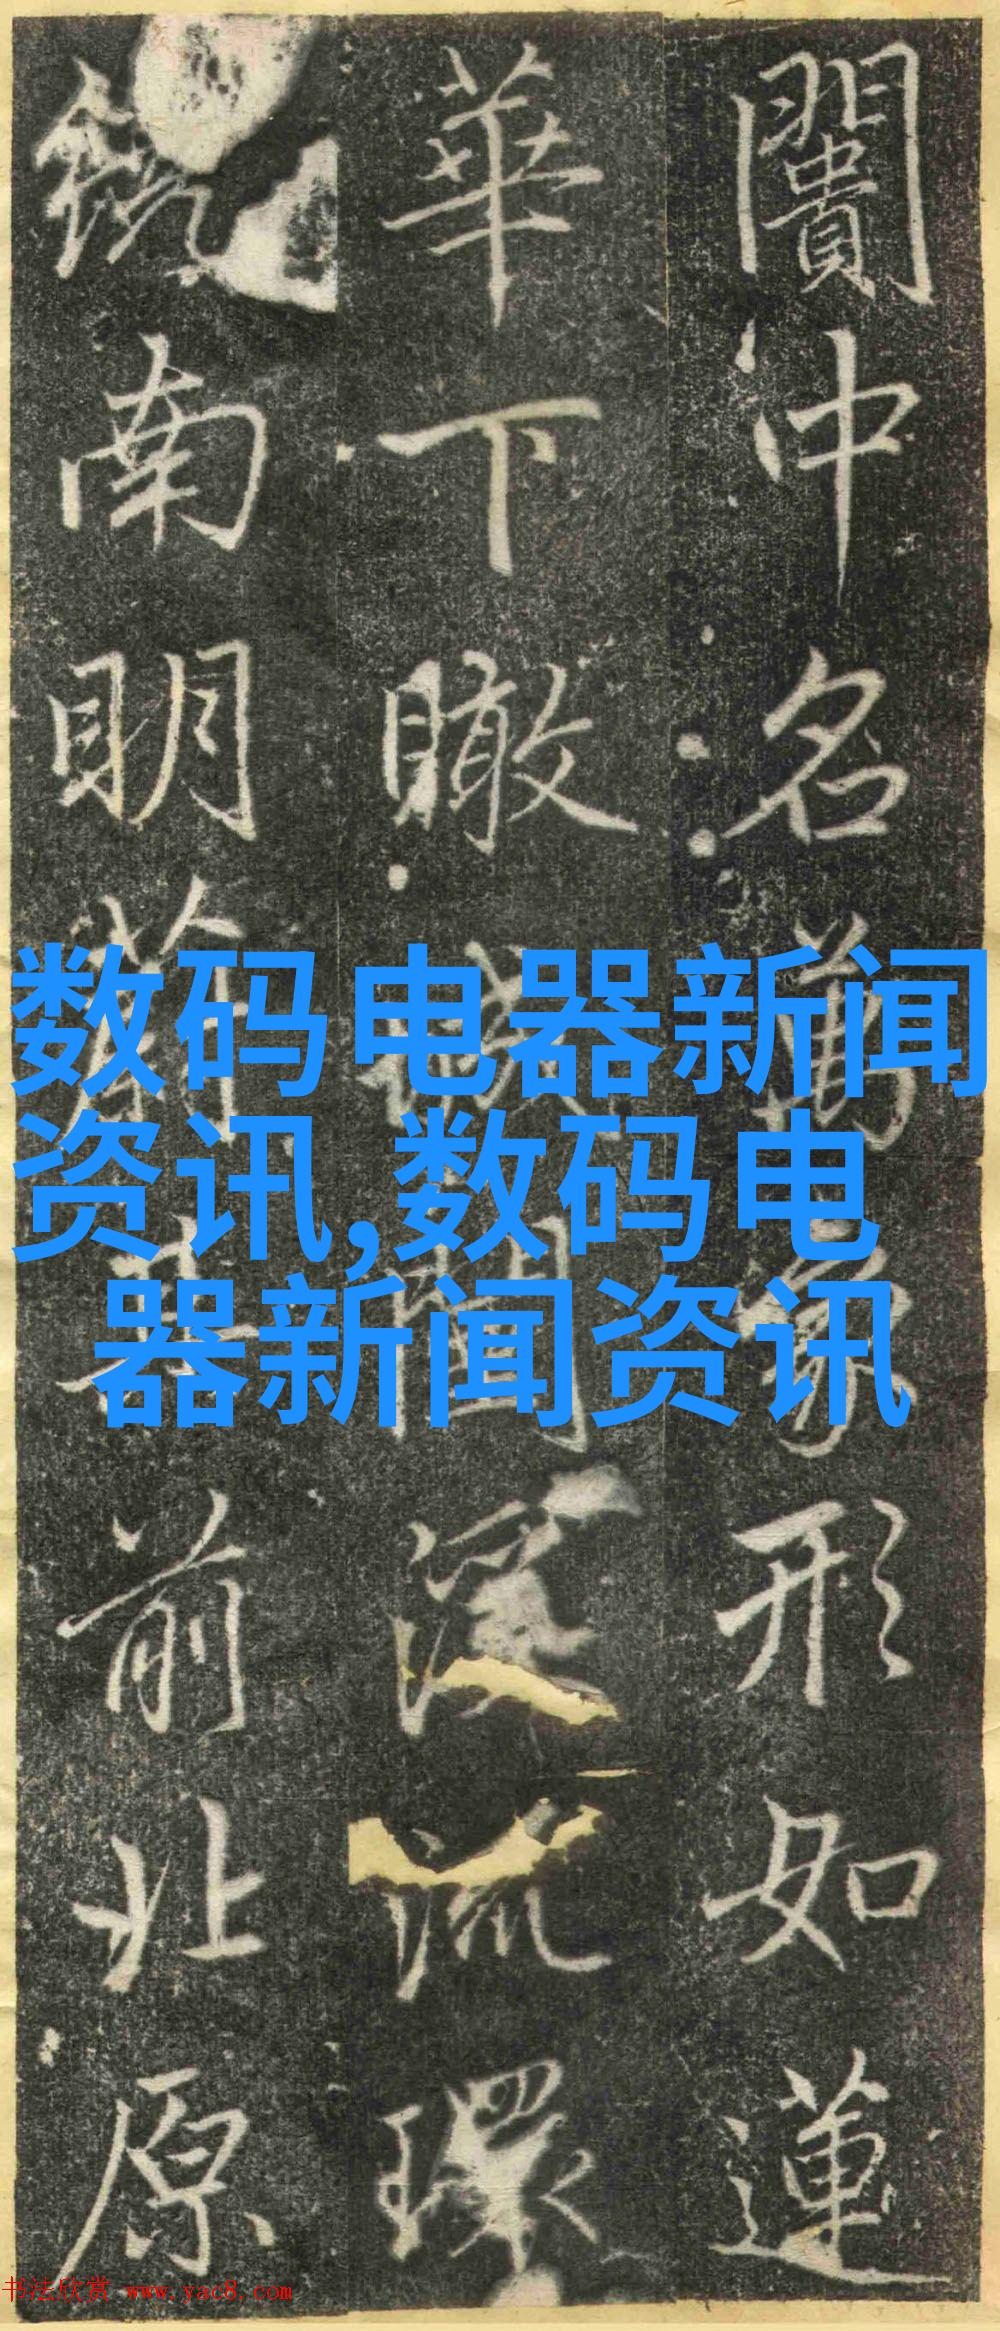 闠中名萬象形如蓮
華下瞰城闉深流環
鏡南明前其前北原
数码电器新闻
资讯,数码电
器新闻资讯
书法欣赏 www.yac8.com